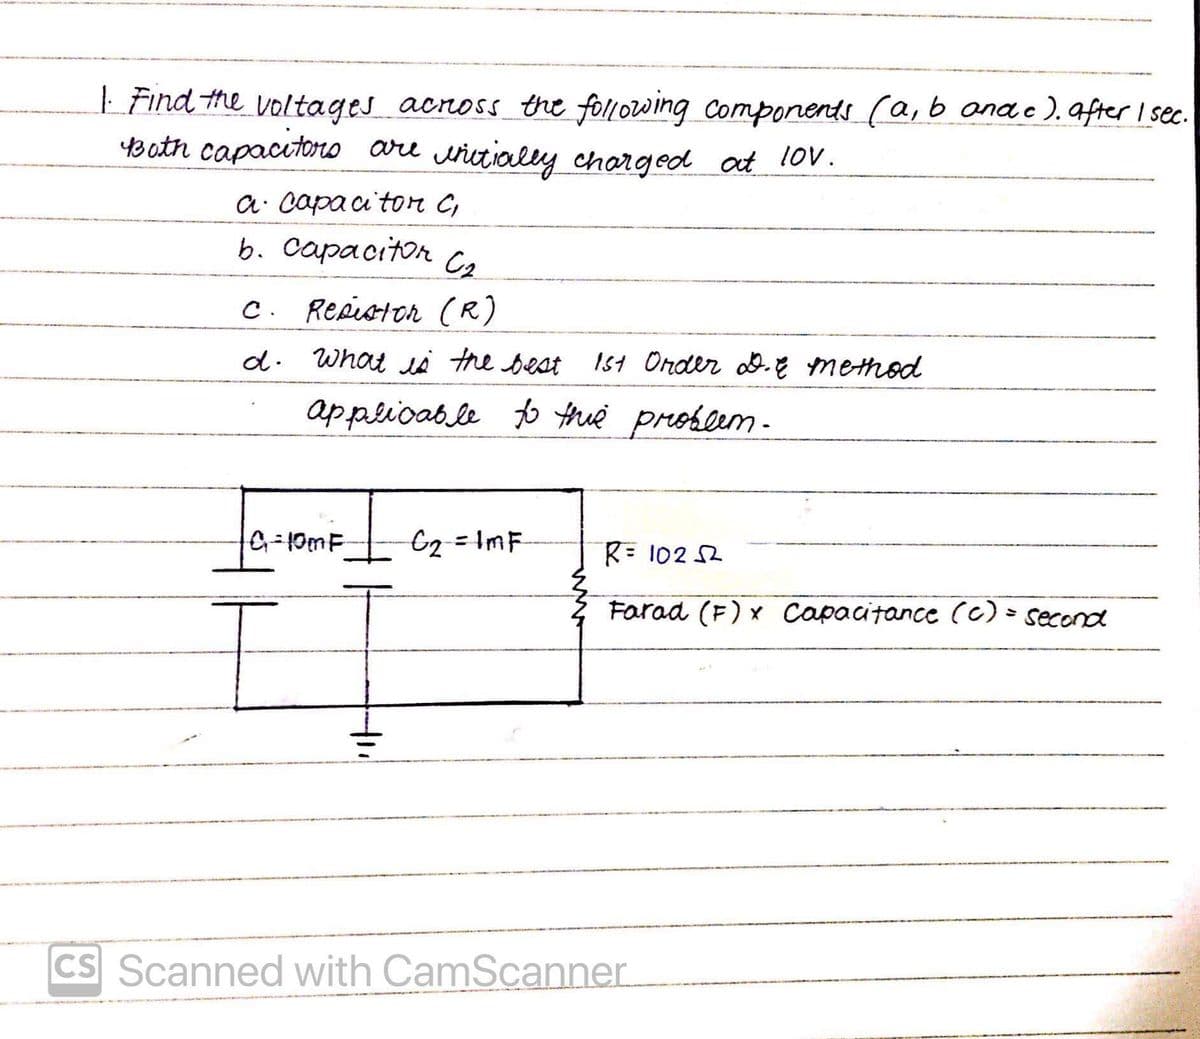 1. Find the voltages across the following components (a, b and c). after 1 sec.
Both capacitors are initially charged at 10V.
a. Capacitor C1
b. Capacitor C2
c. Resistor (R)
d. What is the best 1st Order D.E method
applicable to this problem.
C1 = 10mF C2 = 1mF R = 102 Ω
Farad (F) x Capacitance (C) = second
CS Scanned with CamScanner